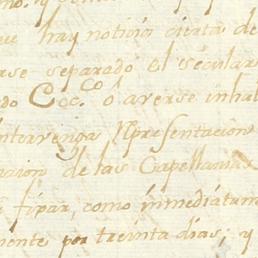 hay noticia cierta de
rse separado el secular
do Ecc.co ó averse inhal
ntervenga Representacion
racion de las Capellanias
fixar, como immediatam
mente por treinta dias; y